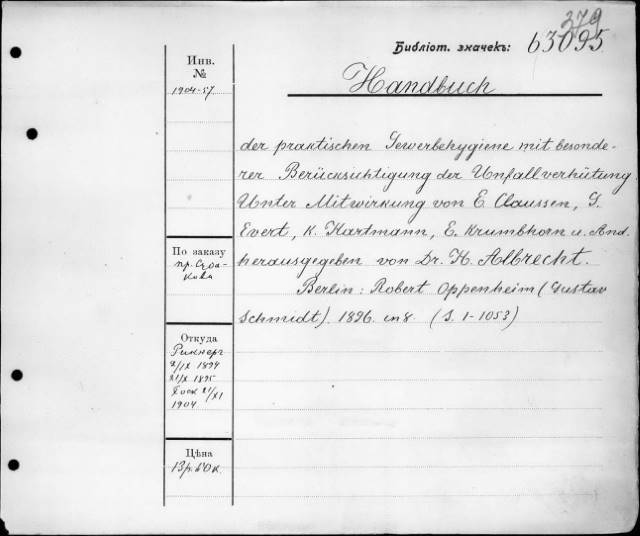 379
Библіот. значекъ: 63095
Инв.
№
1904-57
Handbuch
der praktischen Gewerbehygiene mit besonde-
rer Berücksichtigung der Unfallverhütung.
Unter Mitwirkung von E. Claussen, G.
Evert, K. Hartmann, E. Krumbhorn u. And.
herausgegeben von Dr. H. Albrecht.
Berlin: Robert Oppenheim (Gustav
Schmidt). 1896. in 8. (S. 1-1053)
По заказу
пр.
Откуда
Риккеръ
2/IX 1894
21/X 1895
21/XI
1904.
Цѣна
13 р. 50 к.